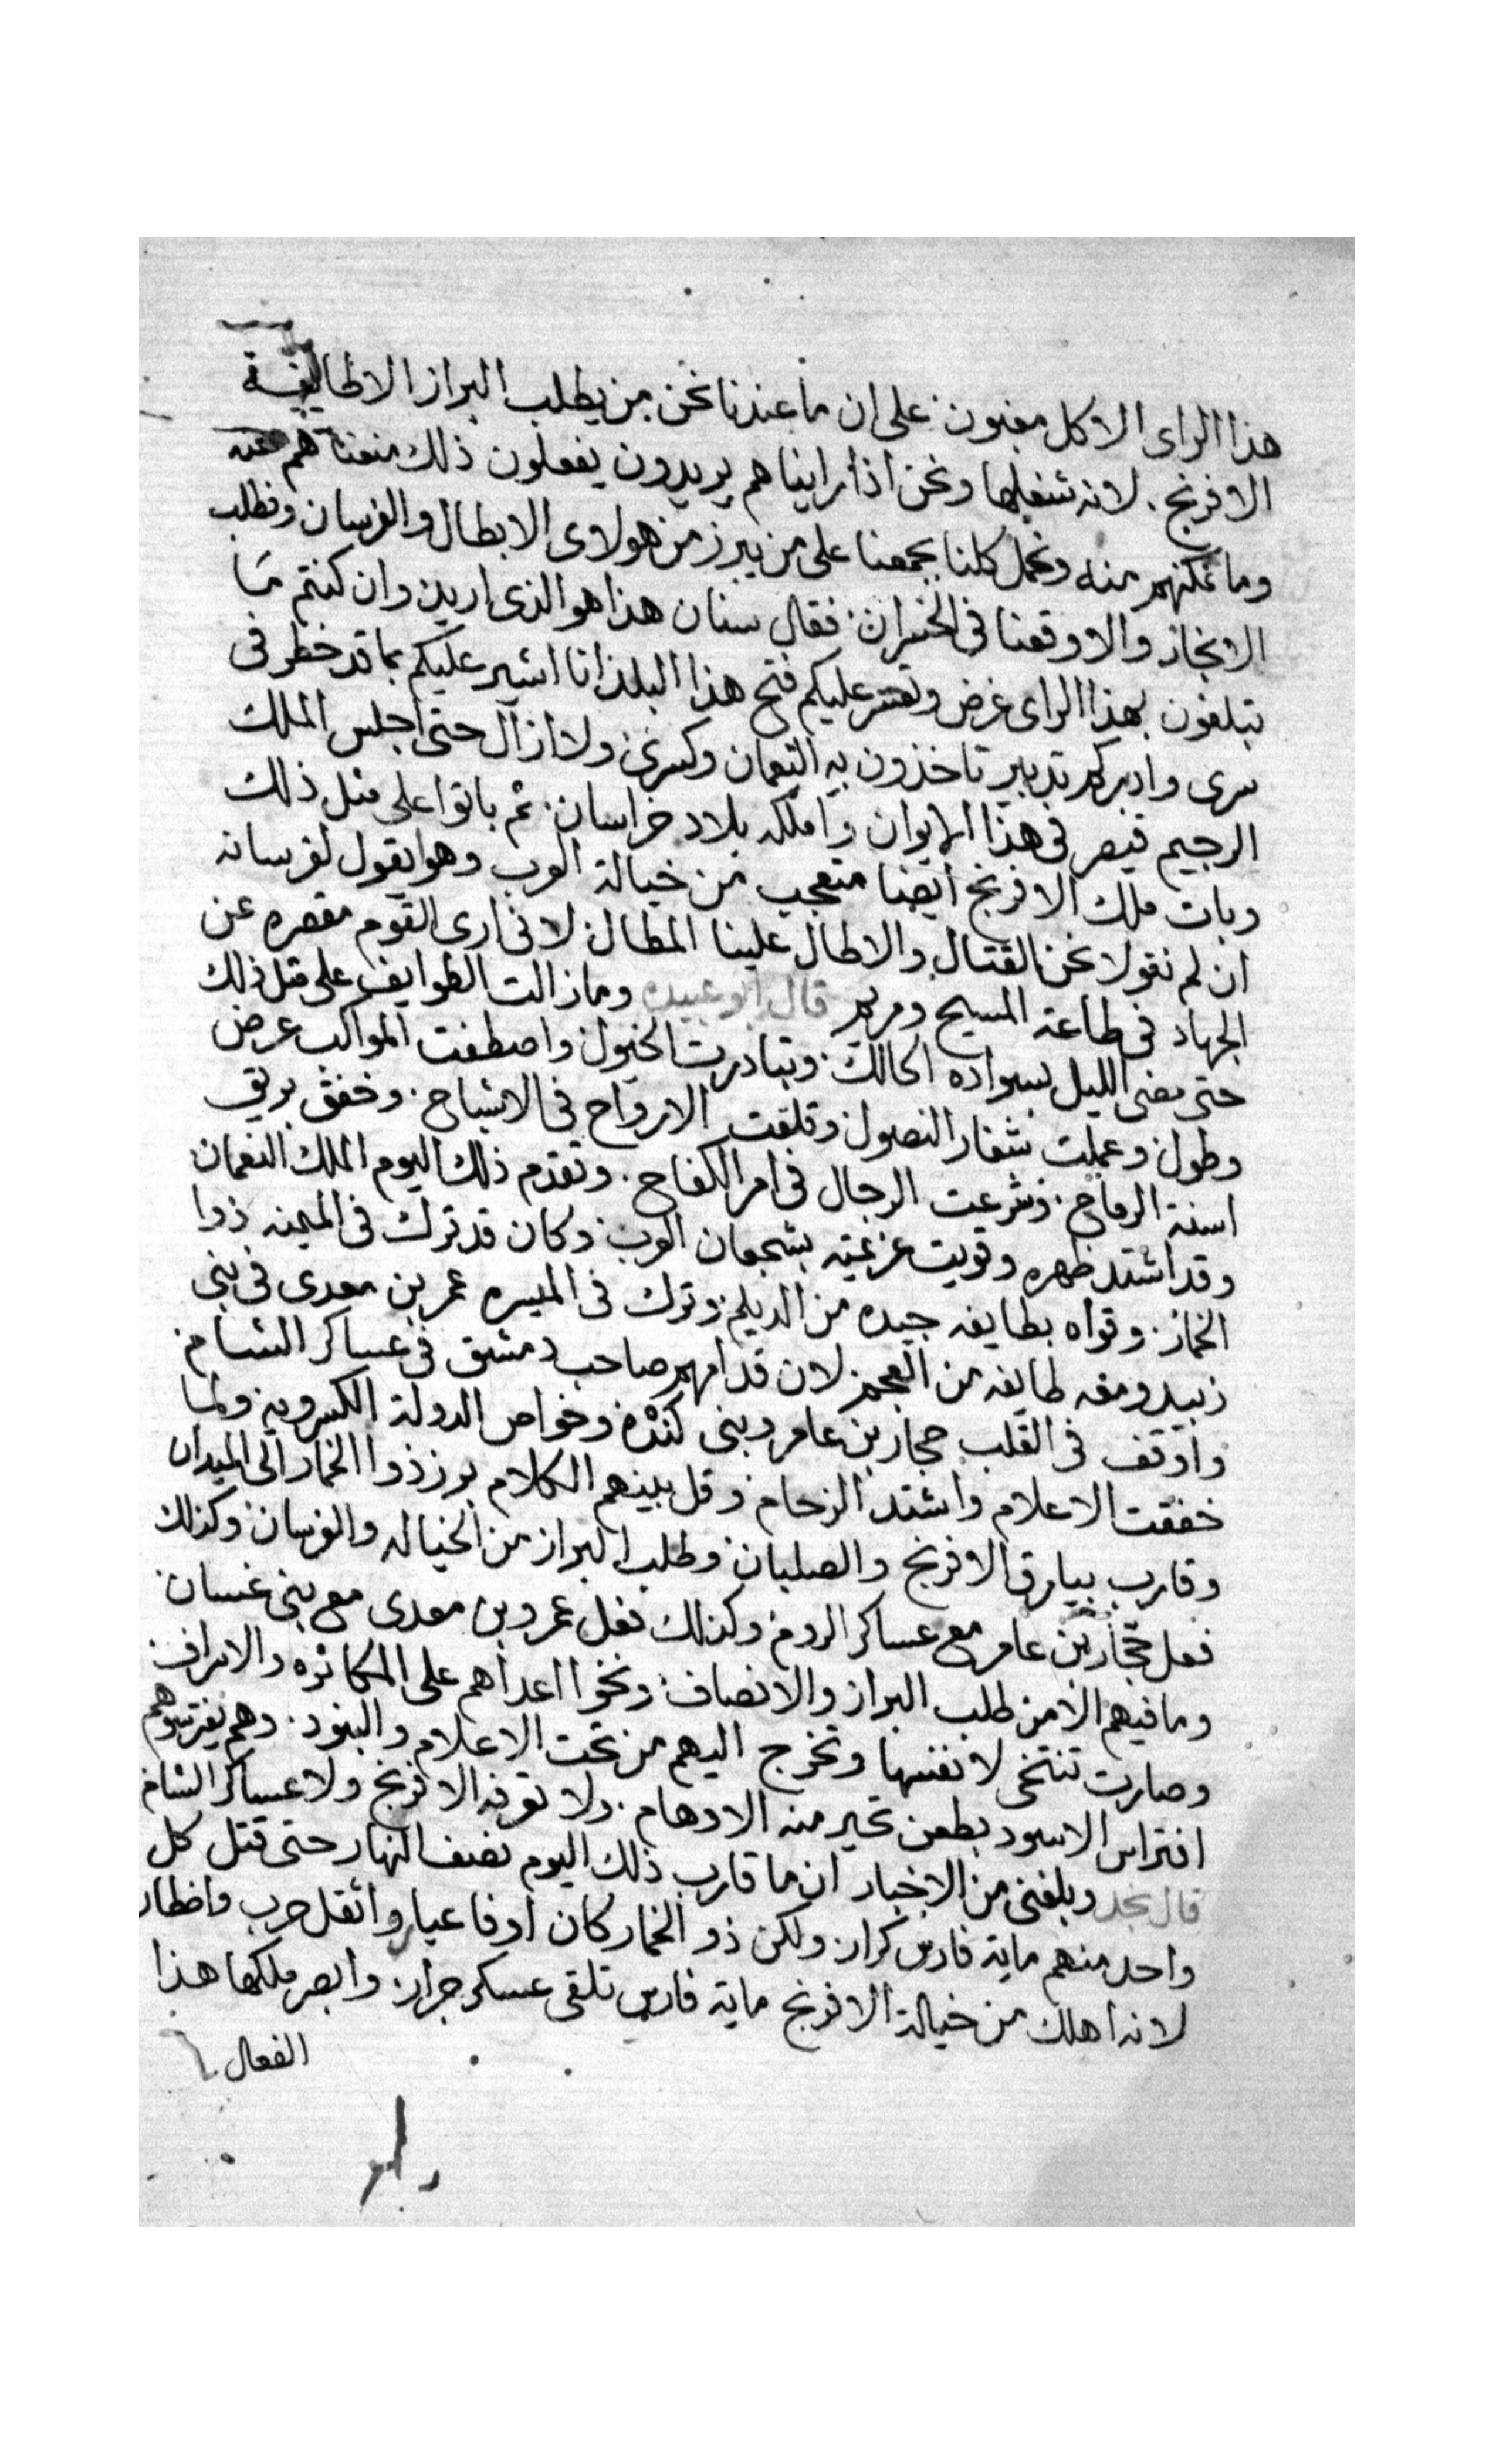 هذا الراى الا كل مغبون على ان ما عندنا نحن من يطلب البراز الا طايفة
الافرنج. لانه شغلها ونحن اذا رايناهم يريدون يفعلون ذلك منعناهم عنه
وما نمكنهم منه ونحمل كلنا بجمعنا على من يبرز من هولاى الابطال والفرسان ونطلب
الانجاز والا وقعنا فى الخسران فقال سنان هذا هو الذى اريد وان كنتم ما
تبلغون بهذا الراى غرض وتعسر عليكم فتح هذا البلد انا اشير عليكم بما قد خطر فى
سرى وادبركم تدبير تاخذون به النعمان وكسرى ولا ازال حتى اجلس الملك
الرحيم قيصر فى هذا الايوان واملكه بلاد خراسان. ثم باتوا على مثل ذلك
وبات ملك الافرنج ايضا متعجب من خيالة العرب وهو يقول لفرسانه
ان لم نتولا نحن القتال والا طال علينا المطال لانى ارى القوم مقصره عن
الجهاد فى طاعة المسيح ومريم قال ابو عبيده وما زالت الطوايف على مثل ذلك
حتى مضى الليل بسواده الحالك. وتبادرت الخيول واصطفت المواكب عرض
وطول وعملت شفار النصول وقلقت الارواح فى الاشباح. وخفق بريق
اسنة الرماح. وشرعت الرجال فى امر الكفاح. وتقدم ذلك اليوم الملك النعمان
وقد اشتد ظهره وقويت عزيمته بشجعان العرب وكان قد ترك فى الميمنه ذوا
الخمار. وقواه بطايفه جيده من الديلم وترك فى الميسره عمر بن معدى فى بنى
زبيد ومعه طايفه من العجم لان قدامهم صاحب دمشق فى عساكر الشام
واوقف فى القلب حجار بن عامر وبنى كنده وخواص الدولة الكسرويه ولما
خفقت الاعلام واشتد الزحام وقل بينهم الكلام برز ذوا الخمار الى الميدان
وقارب بيارق الافرنج والصلبان وطلب البراز من الخياله والفرسان وكذلك
فعل حجار بن عامر مع عساكر الروم وكذلك فعل عمرو بن معدى مع بنى غسان
وما فيهم الا من طلب البراز والانصاف ونخوا اعداهم على المكاثره والاسراف
وصارت تنتخى لانفسها وتخرج اليهم من تحت الاعلام والبنود. وهم يفترسوهم
افتراس الاسود بطعن تحير منه الاوهام. ولا تعرفه الافرنج ولا عساكر الشام
قال نجد وبلغنى من الاخبار ان ما قارب ذلك اليوم نصف النهار حتى قتل كل
واحد منهم ماية فارس كرار ولكن ذو الخمار كان اوفا عيار واثقل حرب واخطار
لانه اهلك من خيالة الافرنج ماية فارس تلقى عسكر جرار وابصر ملكها هذا
الفعال